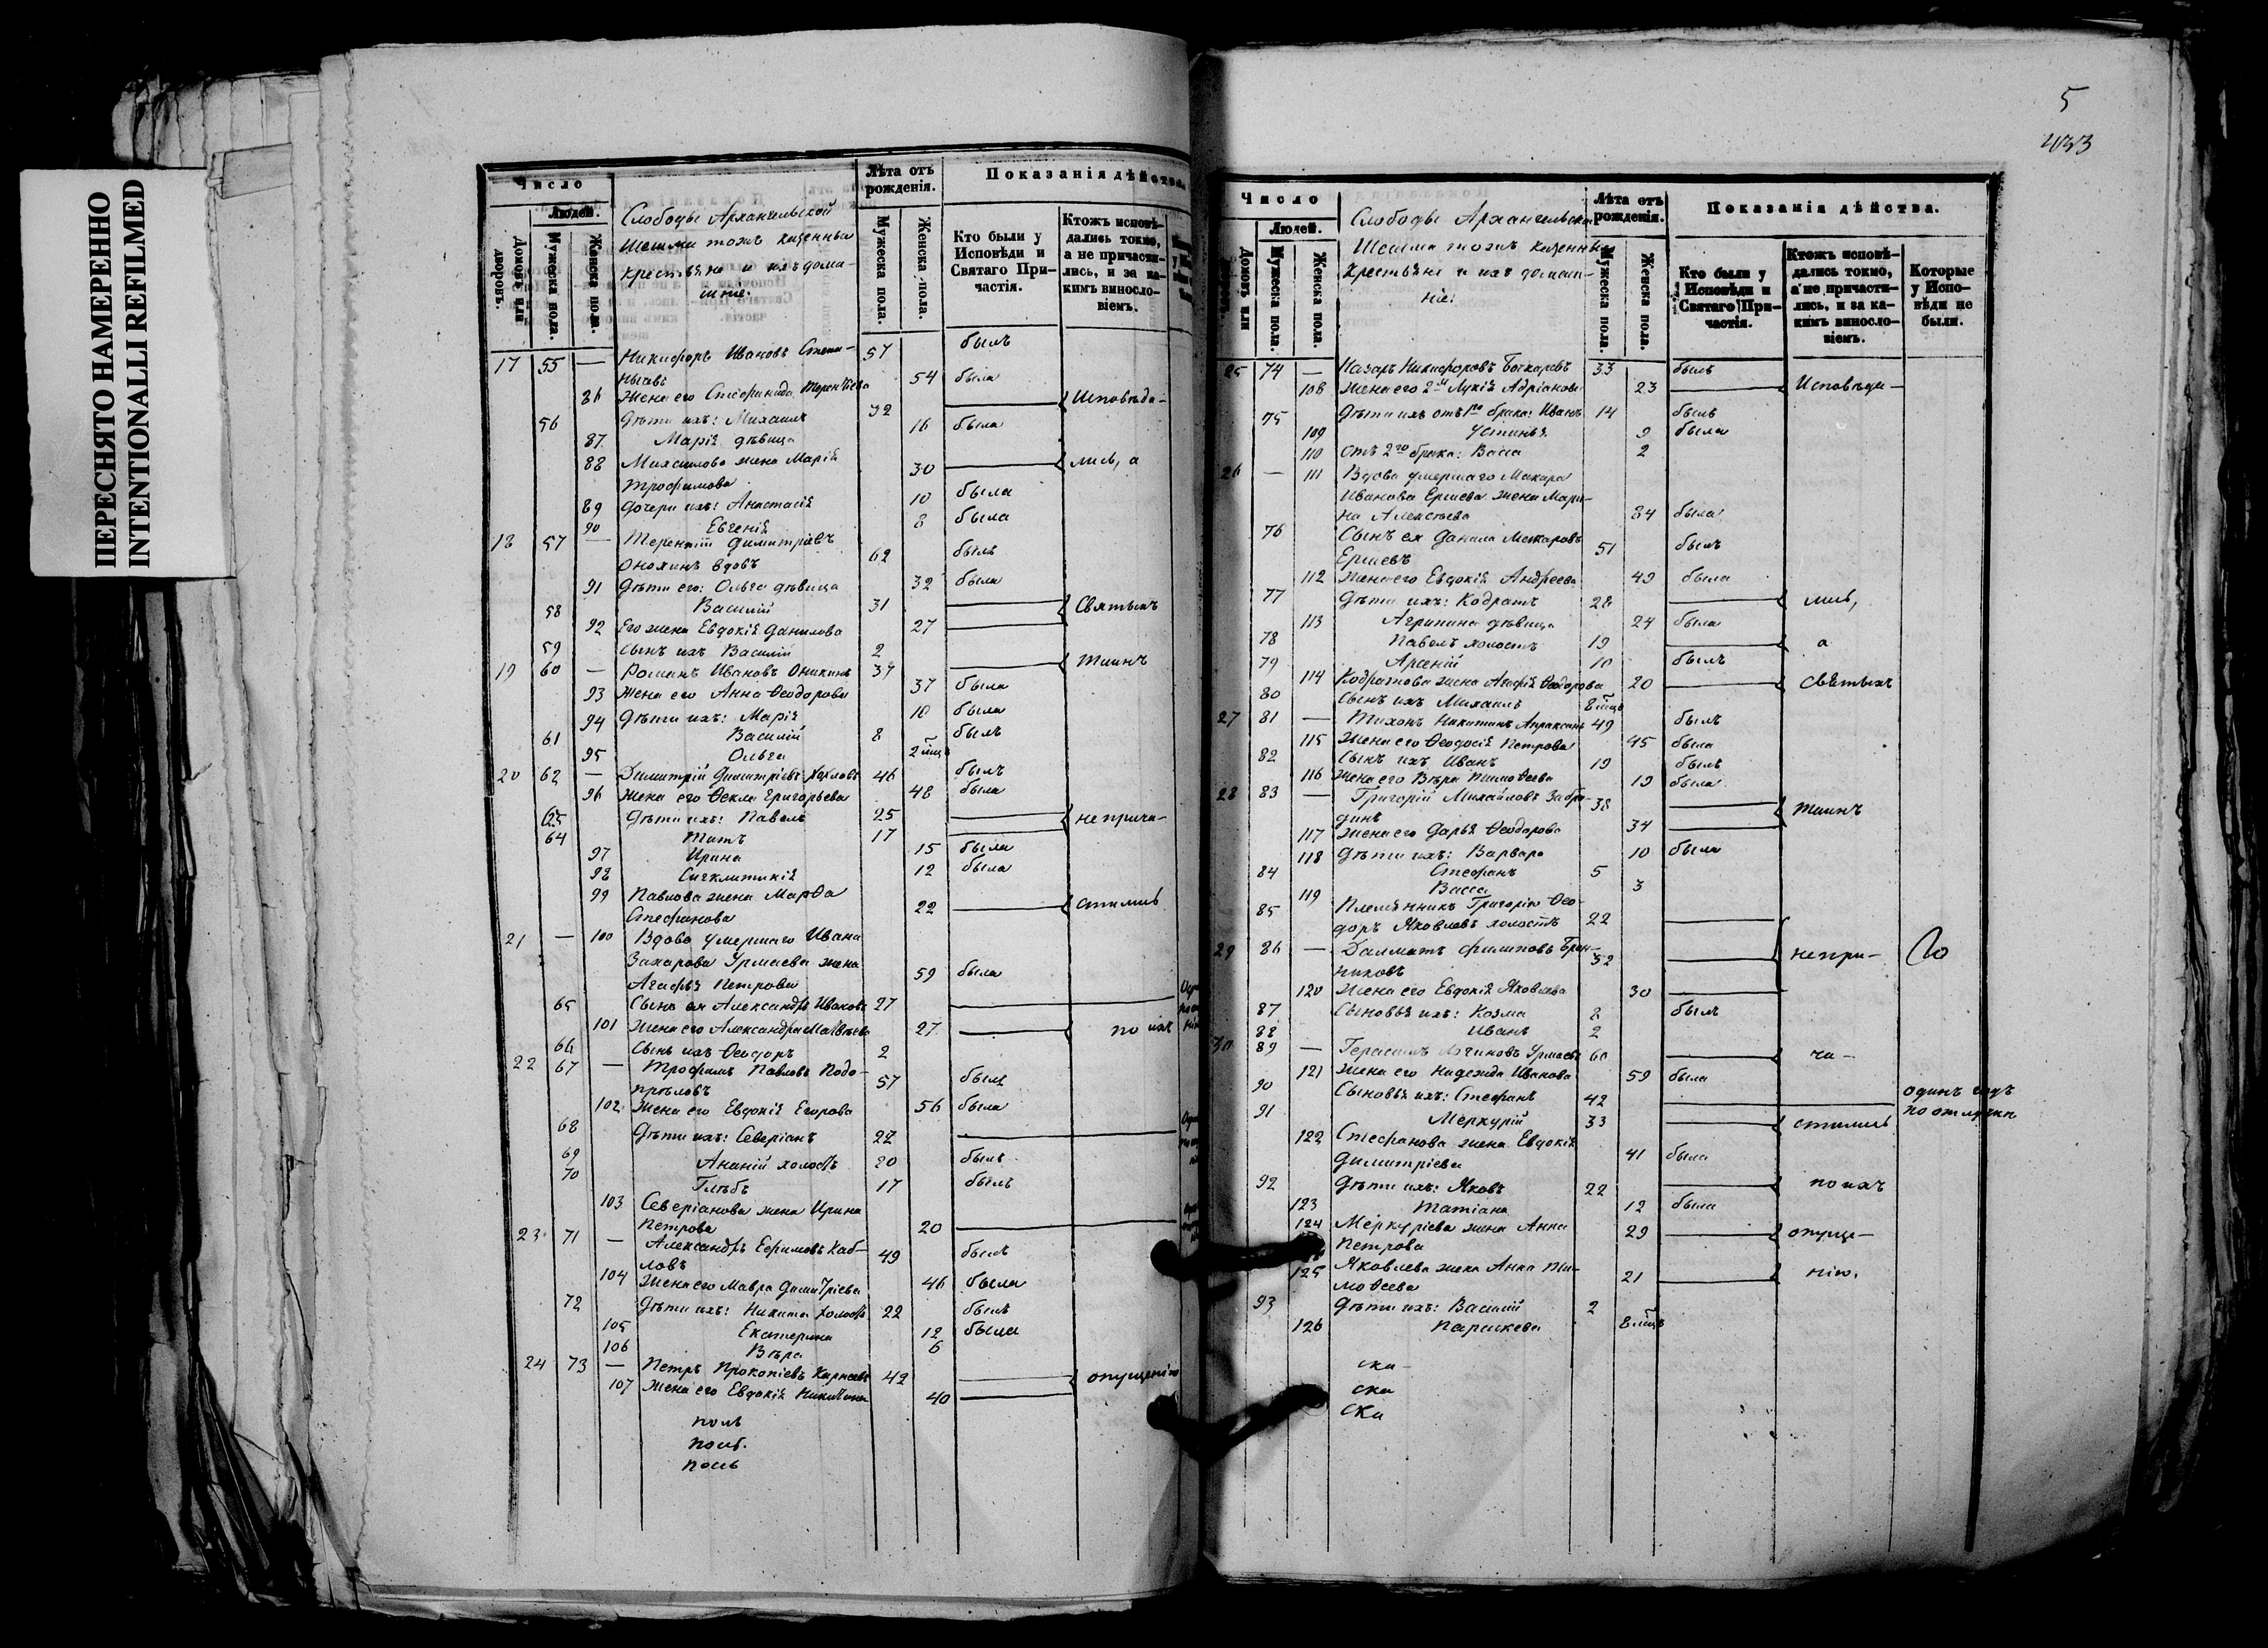 ПЕРЕСНЯТО НАМЕРЕННО
INTENTIONALLI REFILMED
Число
Людей.
Домовъ или дворовъ.
Мужеска пола.
Женска пола.
Слободы Архангельской
Шешмы тожъ казенныя
крестьяне и ихъ дома-
шніе.
Лѣта отъ рожденія.
Мужеска пола.
Женска пола.
Показанія дѣйства.
Кто были у Исповѣди и Святаго При- частія.
Ктожъ исповѣ- дались токмо, а не причасти- лись, и за ка- кимъ винosло- віемъ.
17 55 — Никифоръ Ивановъ 57 былъ
86 Жена его Стефанида Терентіева 54 была
56 Дѣти ихъ: Михаилъ 32 Исповѣда-
87 Марія дѣвица 16 была
88 Михаилова жена Марія
Трофимова 30 лись, а
89 Дочери ихъ: Анастасія 10 была
90 Евгенія 8 была
18 57 — Терентій Димитріевъ
Онохинъ вдовъ 62 былъ
91 Дѣти его: Ольга дѣвица 32 была
58 Василій 31 Святыхъ
92 Его жена Евдокія Данилова 27
59 Сынъ ихъ Василій 2
19 60 — Романъ Ивановъ Оникинъ 37 Таинъ
93 Жена его Анна Ѳеодорова 37 была
94 Дѣти ихъ: Марія 10 была
61 Василій 8 былъ
95 Ольга 2
20 62 — Димитрій Димитріевъ Хохловъ 46 былъ
96 Жена его Ѳекла Григорьева 48 была
Дѣти ихъ: Павелъ 25 не прича-
64 Титъ 17
97 Ирина 15 была
98 Сигклитикія 12 была
99 Павлова жена Марѳа
Стефанова 22 стились
21 — 100 Вдова умершаго Ивана
Захарова Урмаева жена
Агафья Петрова 59 была
65 Сынъ ея Александръ Ивановъ 27
101 Жена его Александра Матвѣева 27 по ихъ
66 Сынъ ихъ Ѳеодоръ 2
22 67 — Трофимъ Павловъ Подо-
прѣловъ 57 былъ
102 Жена его Евдокія Егорова 56 была
68 Дѣти ихъ: Северіанъ 22
69 Ананій холостъ 20 былъ
70 Глѣбъ 17 былъ
103 Северіанова жена Ирина
Петрова 20
23 71 — Александръ Ефимовъ Каб-
ловъ 49 былъ
104 Жена его Мавра Димитріева 46 была
72 Дѣти ихъ: Никита холостъ 22 былъ
105 Екатерина 12 была
106 Вѣра 6
24 73 — Петръ Прокопіевъ Карпеевъ 42 опущенію
107 Жена его Евдокія Никитина 40
5
433
Число
Людей.
Домовъ или
Мужеска пола.
Женска пола.
Слободы Архангельской
Шешмы тожъ казенныя
Крестьяне и ихъ домаш-
ніе:
Лѣта отъ рожденія.
Мужеска пола.
Женска пола.
Показанія дѣйства.
Кто были у Исповѣди и Святаго При- частія.
Ктожъ исповѣ- дались токмо, а не причасти- лись, и за ка- кимъ винosло- віемъ.
Которые у Испо- вѣди не были.
25 74 — Назаръ Никифоровъ Бочкаровъ 33 былъ
108 Жена его 2я Лукія Адріанова 23 Исповѣда-
75 Дѣти ихъ отъ 1го брака: Иванъ 14 былъ
109 Устинья 9 была
110 Отъ 2го брака: Васса 2
26 — 111 Вдова умершаго Макара
Иванова Ершева жена Мари-
на Алексѣева 84 была
76 Сынъ ея Данила Макаровъ
Ершевъ 51 былъ
112 Жена его Евдокія Андреева 49 была
77 Дѣти ихъ: Кодратъ 28 лись,
113 Агрипина дѣвица 24 была
78 Павелъ холостъ 19 а
79 Арсеній 10 былъ
114 Кодратова жена Агафія Ѳеодорова 20 святыхъ
80 Сынъ ихъ Михаилъ 8
27 81 — Тихонъ Никитинъ Апраксинъ 49 былъ
115 Жена его Ѳеодосія Петрова 45 была
82 Сынъ ихъ Иванъ 19 былъ
116 Жена его Вѣра Тимоѳеева 19 была
28 83 — Григорій Михайловъ Забро-
динъ 38 Таинъ
117 Жена его Дарья Ѳеодорова 34
118 Дѣти ихъ: Варвара 10 была
84 Стефанъ 5
119 Васса 3
85 Племянникъ Григорія Ѳео-
доръ Яковлевъ холостъ 22
29 86 — Далматъ Филиповъ
32 непри-
120 Жена его Евдокія Яковлева 30
87 Сыновья ихъ: Козма 8 былъ
88 Иванъ 2
30 89 — Герасимъ Урмаевъ 60 ча-
121 Жена его Надежда Иванова 59 была
90 Сыновья ихъ: Стефанъ 42 одинъ годъ
по отлучкѣ
91 Меркурій 33 стились
122 Стефанова жена Евдокія
Димитріева 41 была
92 Дѣти ихъ: Яковъ 22 по ихъ
123 Татіана 12 была
124 Меркуріева жена Анна
Петрова 29 опуще-
125 Яковлева жена Анна Ти-
моѳеева 21 нію.
93 Дѣти ихъ: Василій 2
126 Параскева 8